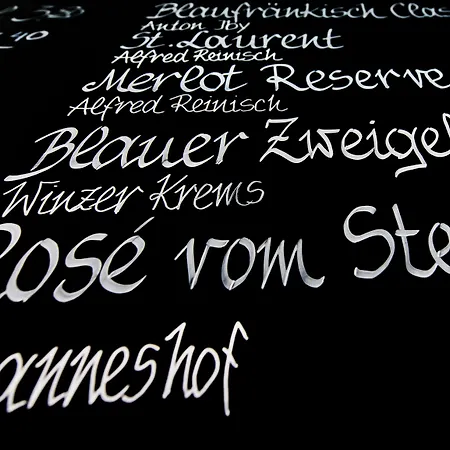 Blaufränkisch Clas
Anton Iby
St. Laurent
Alfred Reinisch
Merlot Reserve
Alfred Reinisch
Blauer Zweigel
Winzer Krems
Rosé vom Ste
anneshof